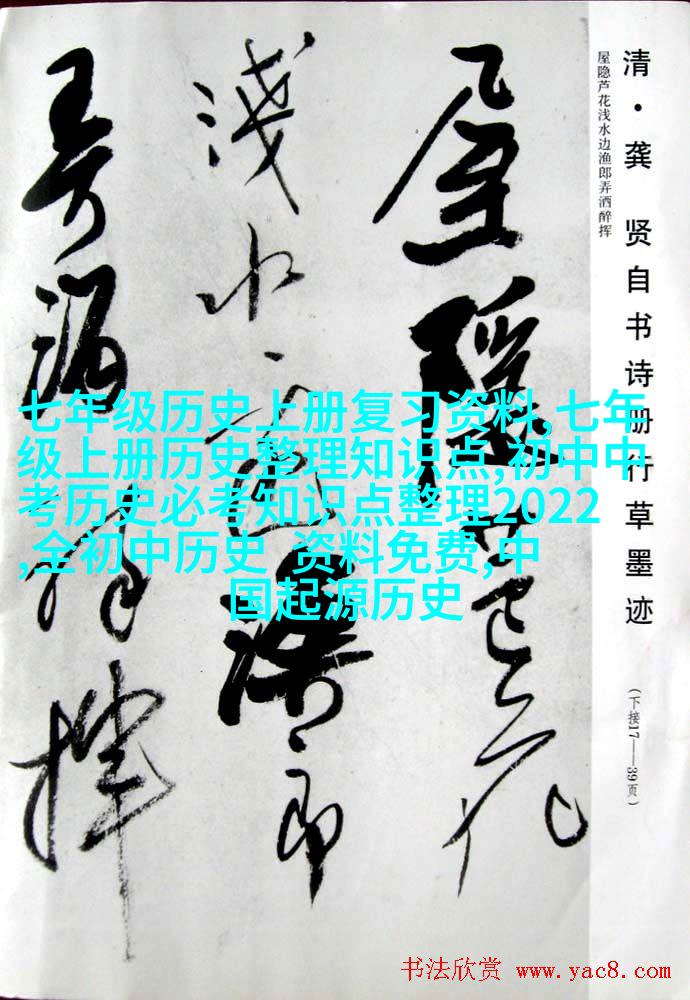 清·龚 贤自书诗册行草墨迹
(下接17——39页)
屋隐芦花浅水边渔郎弄洒醉挥
屋隐芦花
浅水边渔郎
弄酒醉挥
七年级历史上册复习资料,七年
级上册历史整理知识点,初中中
考历史必考知识点整理2022
,全初中历史 资料免费,中
国起源历史
书法欣赏 www.yac8.com